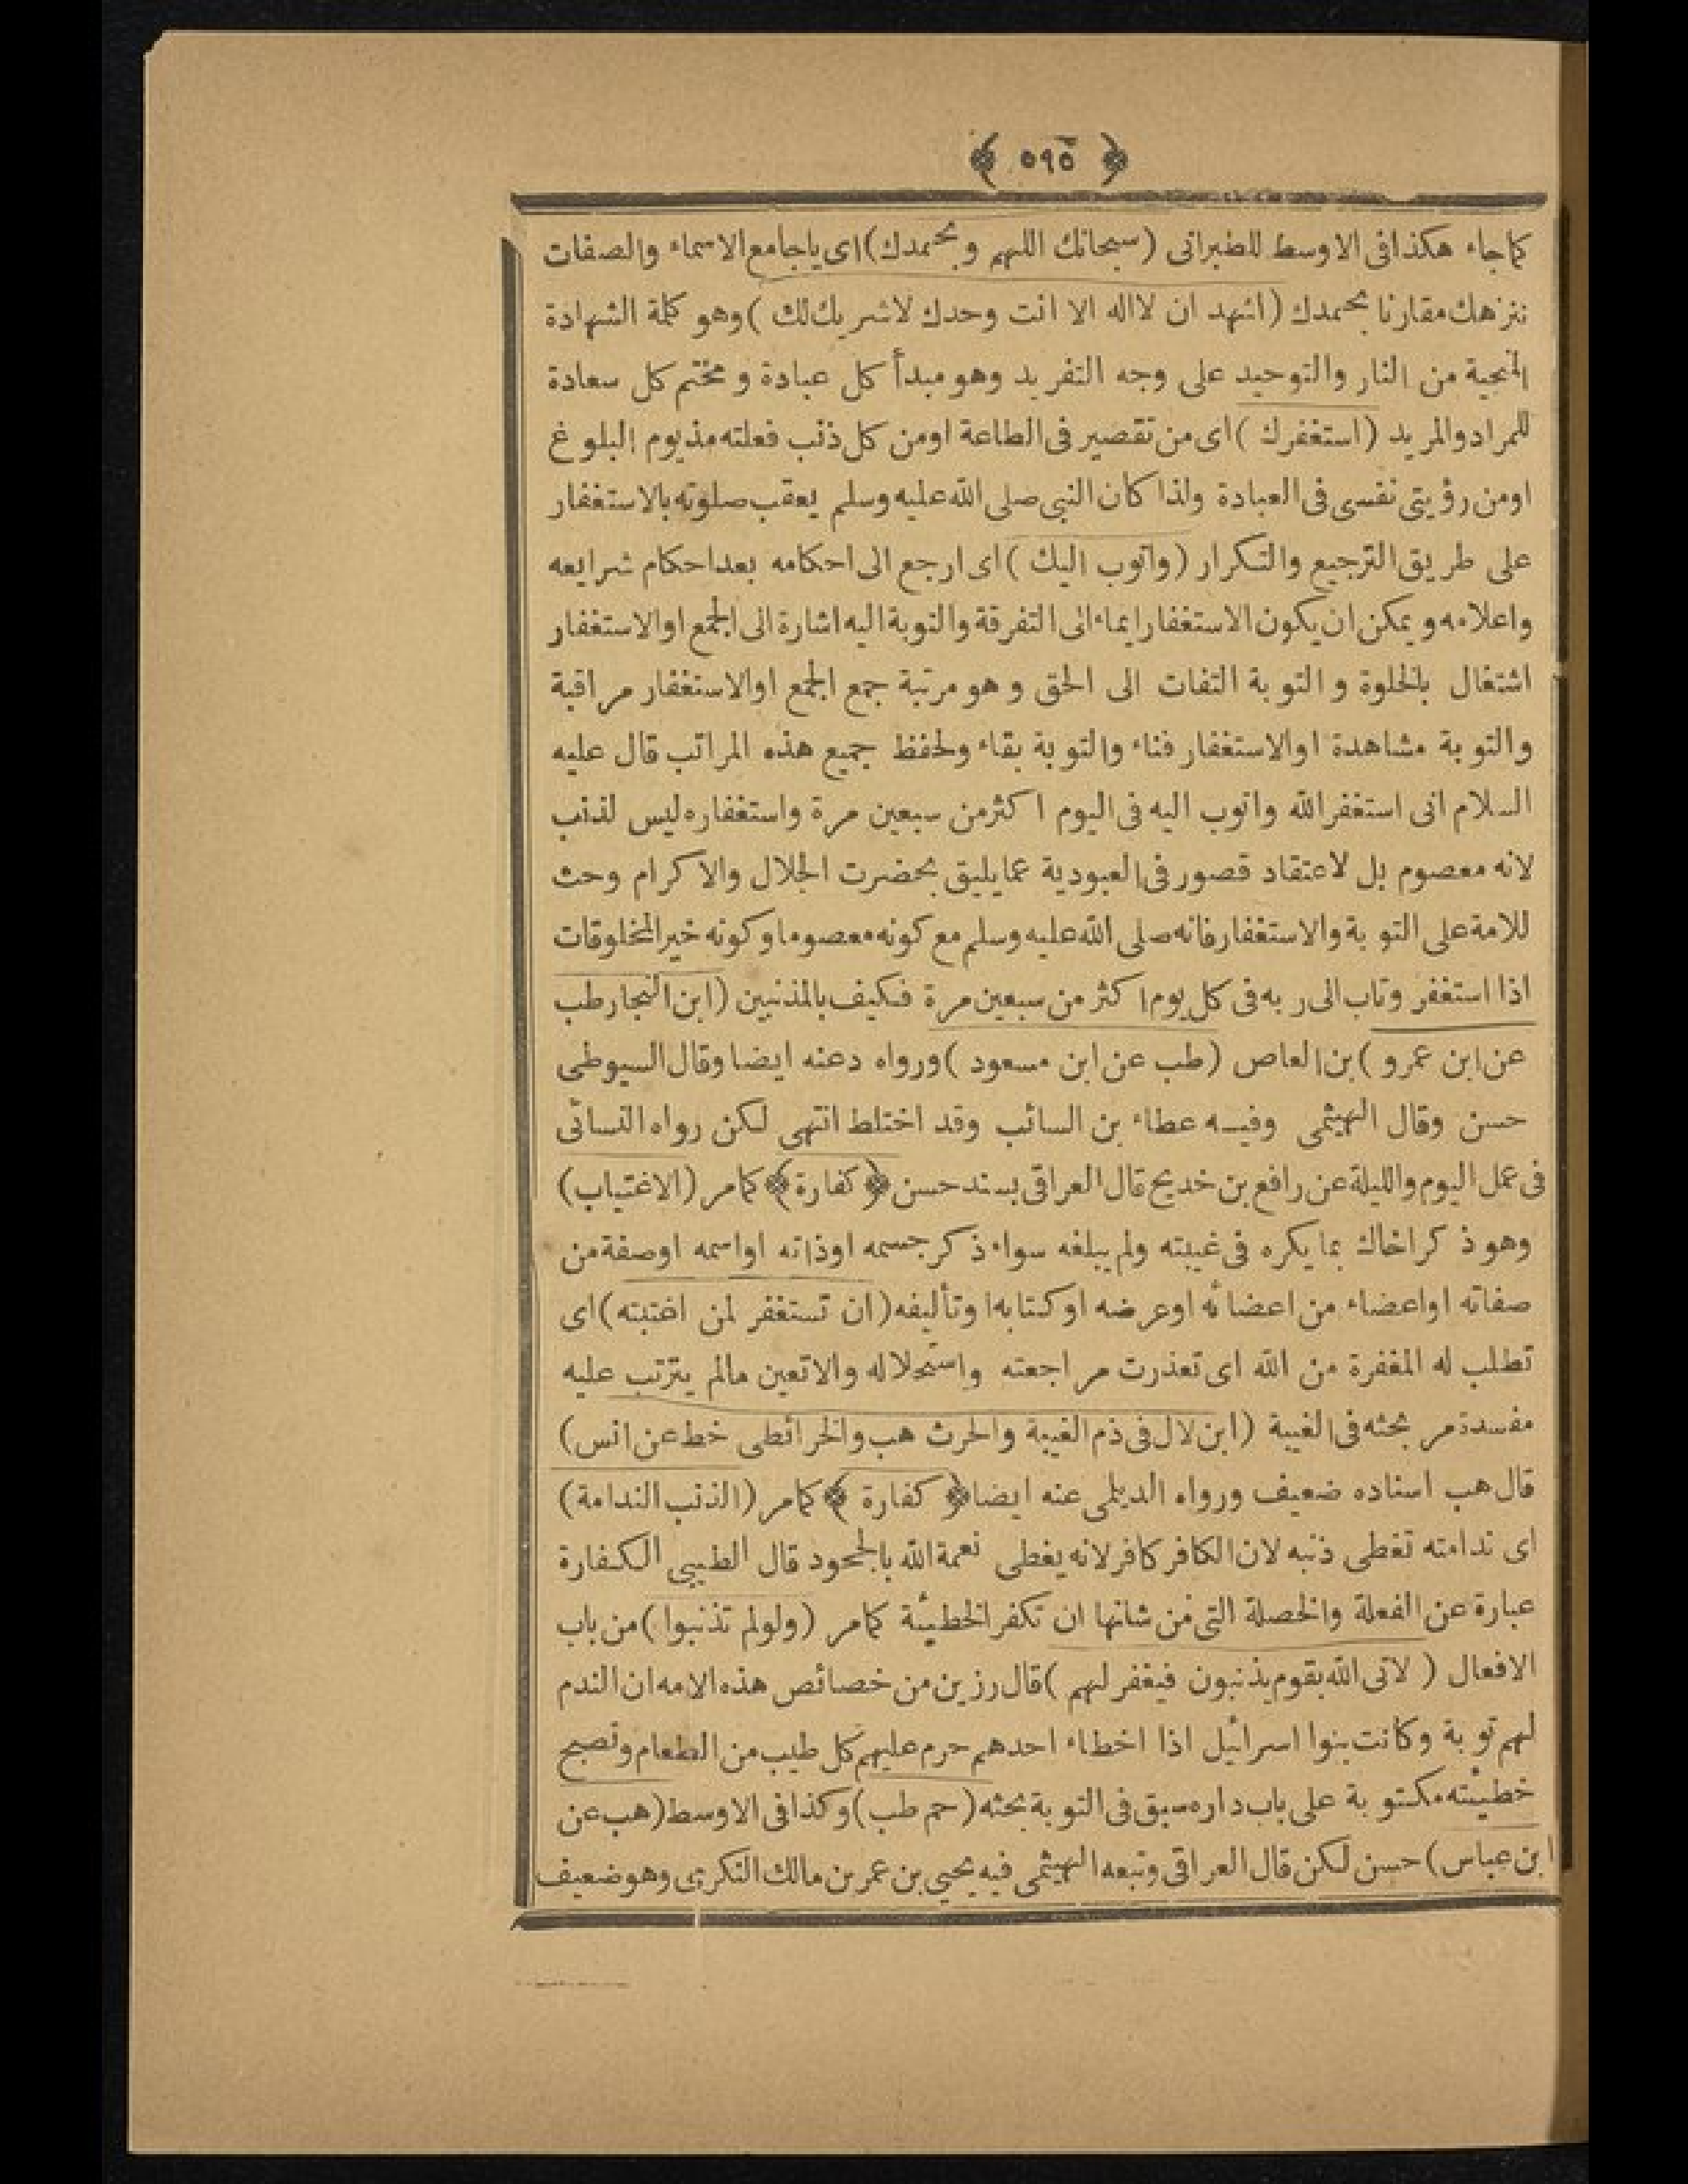 ﴿ ٥٩٥ ﴾
كما جاء هكذا فى الاوسط للطبرانى (سبحانك اللهم وبحمدك) اى ياجامع الاسماء والصفات
ننزهك مقارنا بحمدك (اشهد ان لااله الا انت وحدك لاشريك لك) وهو كلمة الشهادة
المنجية من النار والتوحيد على وجه التفريد وهو مبدأ كل عبادة ومختم كل سعادة
للمراد والمريد (استغفرك) اى من تقصير فى الطاعة اومن كل ذنب فعلته مذيوم البلوغ
اومن رؤيتى نفسى فى العبادة ولذا كان النبى صلى الله عليه وسلم يعقب صلوته بالاستغفار
على طريق الترجيع والتكرار (واتوب اليك) اى ارجع الى احكامه بعد احكام شرايعه
واعلامه ويمكن ان يكون الاستغفار ايماء الى التفرقة والتوبة اليه اشارة الى الجمع اوالاستغفار
اشتغال بالخلوة والتوبة التفات الى الحق وهو مرتبة جمع الجمع اوالاستغفار مراقبة
والتوبة مشاهدة اوالاستغفار فناء والتوبة بقاء ولحفظ جميع هذه المراتب قال عليه
السلام انى استغفر الله واتوب اليه فى اليوم اكثر من سبعين مرة واستغفاره ليس لذنب
لانه معصوم بل لاعتقاد قصور فى العبودية عما يليق بحضرت الجلال والاكرام وحث
للامة على التوبة والاستغفار فانه صلى الله عليه وسلم مع كونه معصوما وكونه خير المخلوقات
اذا استغفر وتاب الى ربه فى كل يوم اكثر من سبعين مرة فكيف بالمذنبين (ابن النجار طب
عن ابن عمرو) بن العاص (طب عن ابن مسعود) ورواه دعنه ايضا وقال السيوطى
حسن وقال الهيثمى وفيسه عطاء بن السائب وقد اختلط انتهى لكن رواه النسائى
فى عمل اليوم والليلة عن رافع بن خديج قال العراقى بسند حسن ﴿كفارة﴾ كمامر (الاغتياب)
وهو ذكر اخاك بما يكره فى غيبته ولم يبلغه سواء ذكر جسمه اوذاته اواسمه اوصفة من
صفاته اواعضاء من اعضائه اوعرضه اوكتابه اوتأليفه (ان تستغفر لمن اغتبته) اى
تطلب له المغفرة من الله اى تعذرت مراجعته واستحلاله والاتعين مالم يترتب عليه
مفسدة مر بحثه فى الغيبة (ابن لال فى ذم الغيبة والحرث هب والخرائطى خط عن انس)
قال هب اسناده ضعيف ورواه الديلمى عنه ايضا ﴿كفارة﴾ كمامر (الذنب الندامة)
اى ندامته تغطى ذنبه لان الكافر كافر لانه يغطى نعمة الله بالجحود قال الطيبى الكفارة
عبارة عن الفعلة والخصلة التى من شانها ان تكفر الخطيئة كمامر (ولولم تذنبوا) من باب
الافعال (لاتى الله بقوم يذنبون فيغفر لهم) قال رزين من خصائص هذه الامه ان الندم
لهم توبة وكانت بنوا اسرائيل اذا اخطاء احدهم حرم عليهم كل طيب من الطعام وتصبح
خطيئته مكتوبة على باب داره سبق فى التوبة بحثه (حم طب) وكذا فى الاوسط (هب عن
ابن عباس) حسن لكن قال العراقى وتبعه الهيثمى فيه يحيى بن عمر بن مالك النكرى وهو ضعيف